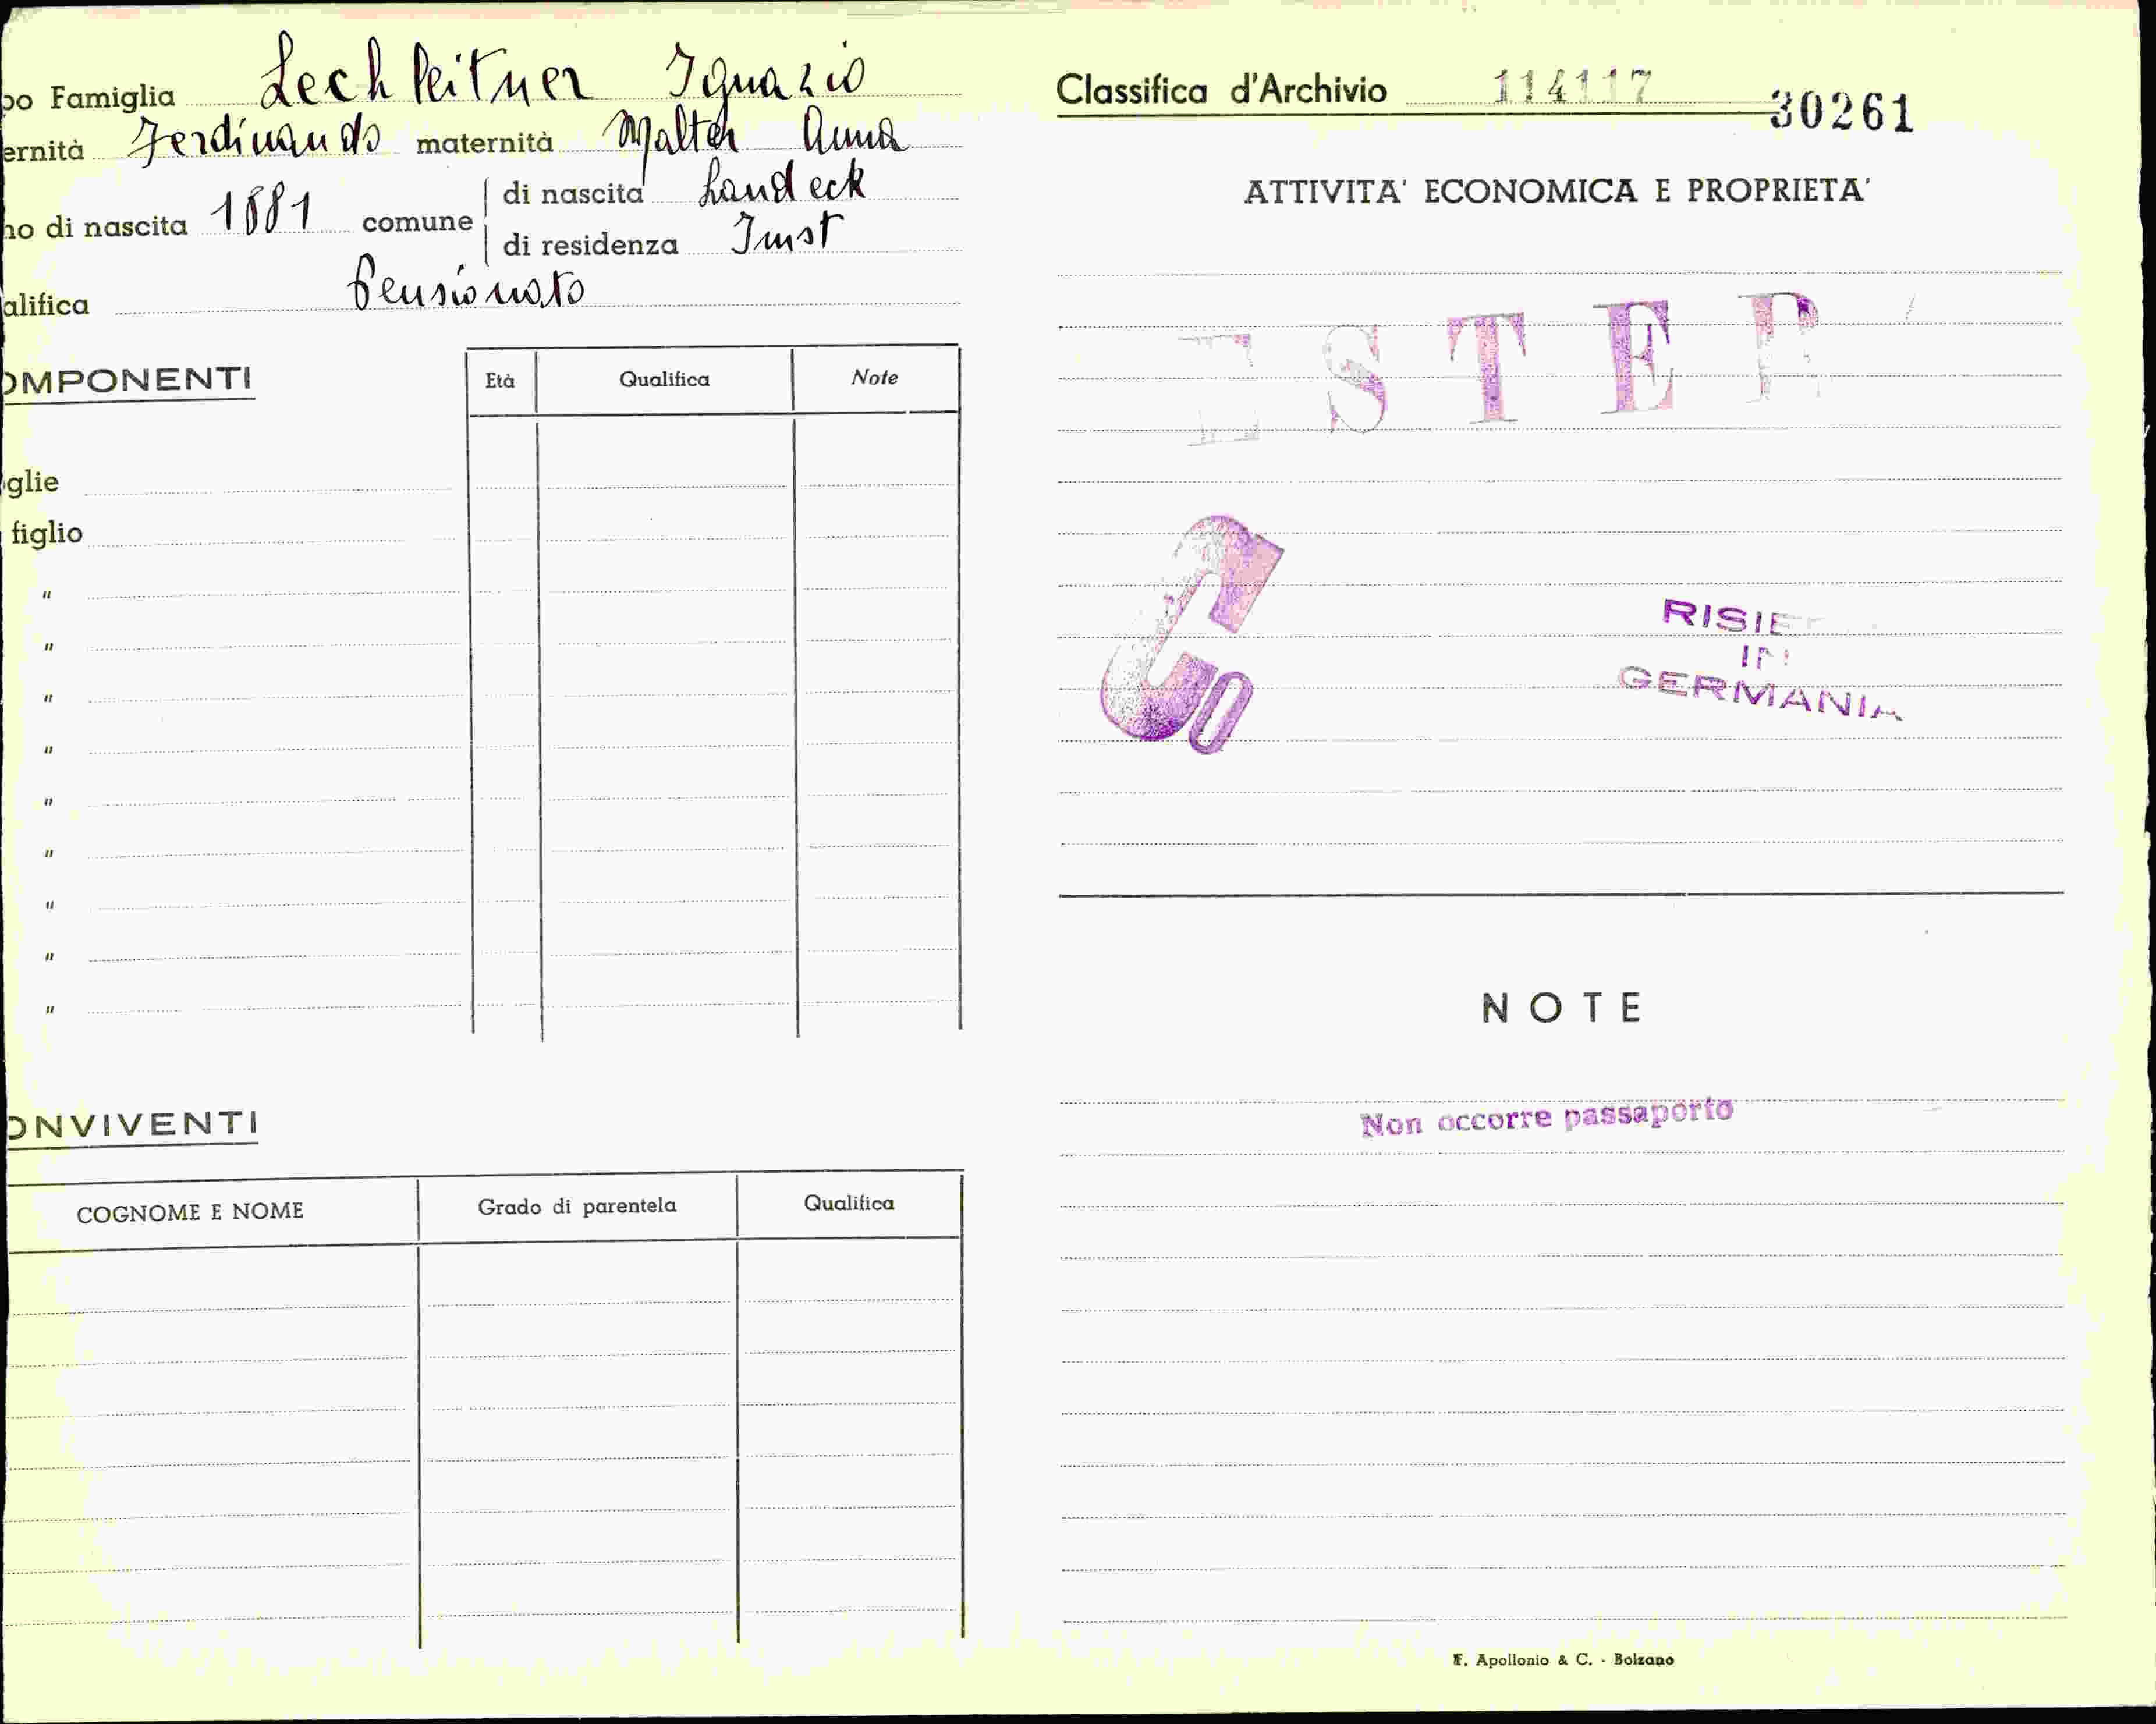 po Famiglia Lechleitner Ignazio
ernità Ferdinando maternità Malter Anna
no di nascita 1881 comune di nascita Landeck
di residenza Imst
alifica Pensionato
OMPONENTI
Età Qualifica Note
glie
figlio
"
"
"
"
"
"
"
"
"
ONVIVENTI
COGNOME E NOME Grado di parentela Qualifica
Classifica d'Archivio 114117 30261
ATTIVITA' ECONOMICA E PROPRIETA'
ESTER
RISIE
IN
GERMANIA
NOTE
Non occorre passaporto
F. Apollonio & C. - Bolzano